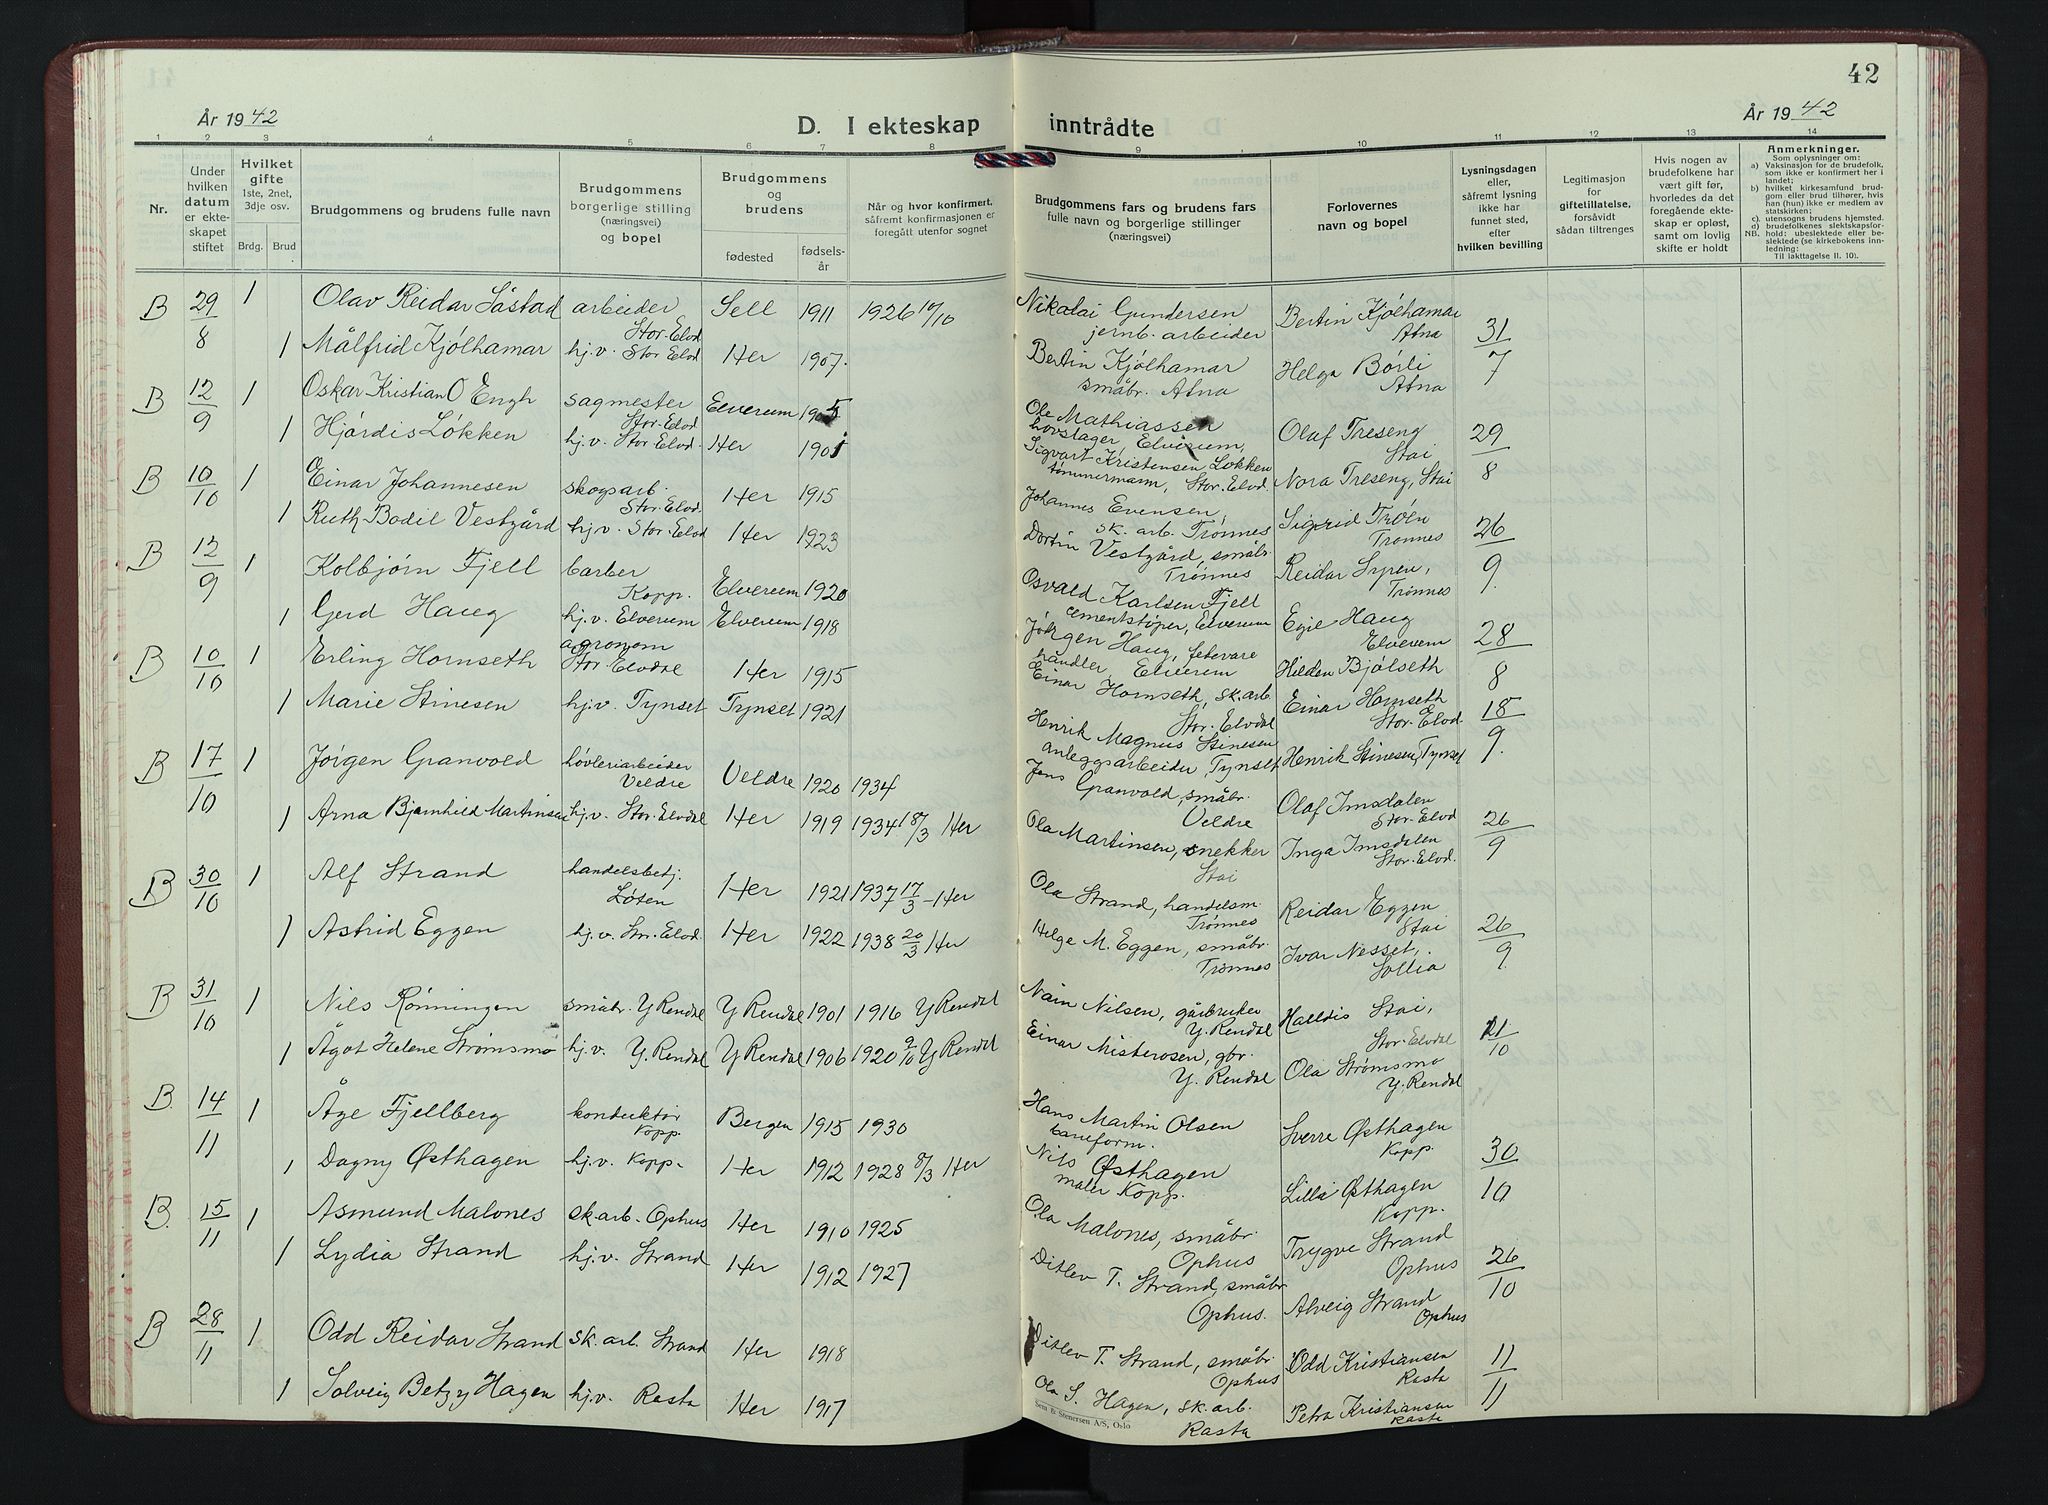 42
År 1942
D. I ekteskap inntrådte
År 1942
1 2 3 4 5 6 7 8 9 10 11 12 13 14
Nr.
Under hvilken datum er ekteskapet stiftet
Hvilket gifte 1ste, 2net, 3dje osv.
Brdg. Brud
Brudgommens og brudens fulle navn
Brudgommens borgerlige stilling (næringsvei) og bopel
Brudgommens og brudens
fødested
fødselsår
Når og hvor konfirmert. såfremt konfirmasjonen er foregått utenfor sognet
Brudgommens fars og brudens fars fulle navn og borgerlige stillinger (næringsvei)
Forlovernes navn og bopel
Lysningsdagen eller, såfremt lysning ikke har funnet sted, efter hvilken bevilling
Legitimasjon for giftetillatelse, forsåvidt sådan tiltrenges
Hvis nogen av brudefolkene har vært gift før, hvorledes da det foregående ekteskap er opløst, samt om lovlig skifte er holdt
Anmerkninger.
Som oplysninger om:
a) Vaksinasjon for de brudefolk, som ikke er konfirmert her i landet;
b) hvilket kirkesamfund brudgom eller brud tilhører, hvis han (hun) ikke er medlem av statskirken;
c) utensogns brudens hjemsted.
d) brudefolkenes slektskapsforhold: ubeslektede eller beslektede (se kirkebokens innledning:
NB. Til iakttagelse II. 10).
B 29/8 1 Olav Reidar Såstad arbeider Stor-Elvd Sell 1911 1926 17/10 Nikolai Gundersen jernb. arbeider Bertin Kjølhamar Atna 31/7
1 Målfrid Kjølhamar hj.v. Stor Elvd Her 1907. Bertin Kjølhamar småbr. Atna Helga Børli Atna
B 12/9 1 Oskar Kristian O Engh sagmester Stor-Elvd Elverum 1905 Ole Mathiassen hovslager, Elverum, Olaf Treseng Stai 29/8
1 Hjørdis Løkken hj.v. Stor Elvd. Her 1901 Sigvart Kristensen Løkken tømmermann, Stor. Elvd. Nora Treseng, Stai
B 10/10 1 Einar Johannesen skogsarb. Stor. Elvd. Her 1915 Johannes Evensen, sk. arb. Trønnes Sigrid Trøen Trønnes 26/9.
1 Ruth Bodil Vestgård hj.v. Stor-Elvd Her 1923 Dortin Vestgård, småbr. Trønnes Reidar Lyren, Trønnes
B 12/9 1 Kolbjørn Fjell barber Kopp. Elverum 1920 Osvald Karlsen Fjell cementstøper, Elverum Egil Haug Elverum 28/8
1 Gerd Haug hj.v. Elverum Elverum 1918 Jørgen Haug, fetevare håndler, Elverum Hilden Bjølseth
B 10/10 1 Erling Hornseth agronom Stor-Elvdal Her 1915 Einar Hornseth, sk.arb. Stor. Elvdal Einar Hornseth Stor-Elvd. 18/9.
1 Marie Stinesen hj.v. Tynset Tynset 1921 Henrik Magnus Stinesen anleggsarbeider, Tynset Henrik Stinesen, Tynset
B 17/10 1 Jørgen Granvold høvleriarbeider Veldre Veldre 1920 1934 Jens Granvold, småbr. Veldre Olaf Imsdalen Stor-Elvd 26/9
1 Arna Bjarnhild Martinsen hj.v. Stor Elvdal Her 1919 1934 18/3 Her Ola Martinsen, snekker Stai Inga Imsdalen Stor-Elvd.
B 30/10 1 Alf Strand handelsbetj. Løten Her 1921 1937 17/3 - Her Ola Strand, handelsm. Trønnes Reidar Eggen Stai 26/9.
1 Astrid Eggen hj.v. Stor-Elvd. Her 1922 1938 20/3 Her Helge M. Eggen, småbr. Trønnes Ivar Nesset, Sollia
B 31/10 1 Nils Rønningen småbr. Y Rendal Y Rendal 1901 1916 Y Rendal Nain Nilsen, gårbruker Y. Rendal Halldis Stai, Stor-Elvdal 21/10
1 Ågot Helene Strømsmo hj.v. Y. Rendal Y Rendal 1906 1920 9/10 Y Rendal Einar Misterosen, gbr. Y. Rendal Ola Strømsmo Y. Rendal
B. 14/11 1 Åge Fjellberg konduktør Kopp. Bergen 1915 1930 Hans Martin Olsen baneform. Sverre Østhagen Kopp. 30/10
1 Dagny Østhagen hj.v. Kopp. Her 1912 1928 8/3 Her Nils Østhagen maler Kopp. Lilli Østhagen Kopp.
B. 15/11 1 Asmund Malones sk.arb. Ophus Her 1910 1925 Ola Malones, småbr. Ophus Trygve Strand Ophus 26/10
1 Lydia Strand hj.v. Strand Her 1912 1927 Ditlev T. Strand, småbr Ophus. Alveig Strand Ophus
B 28/11 1 Odd Reidar Strand sk. arb. Strand Her 1918 Ditlev T. Strand, småbr. Ophus Odd Kristiansen Rasta 11/11
1 Solveig Betzy Hagen hj.v. Rasta Her 1917 Ola S. Hagen, sk.arb. Rasta Petra Kristiansen Rasta
Sem & Stenersen A/S, Oslo